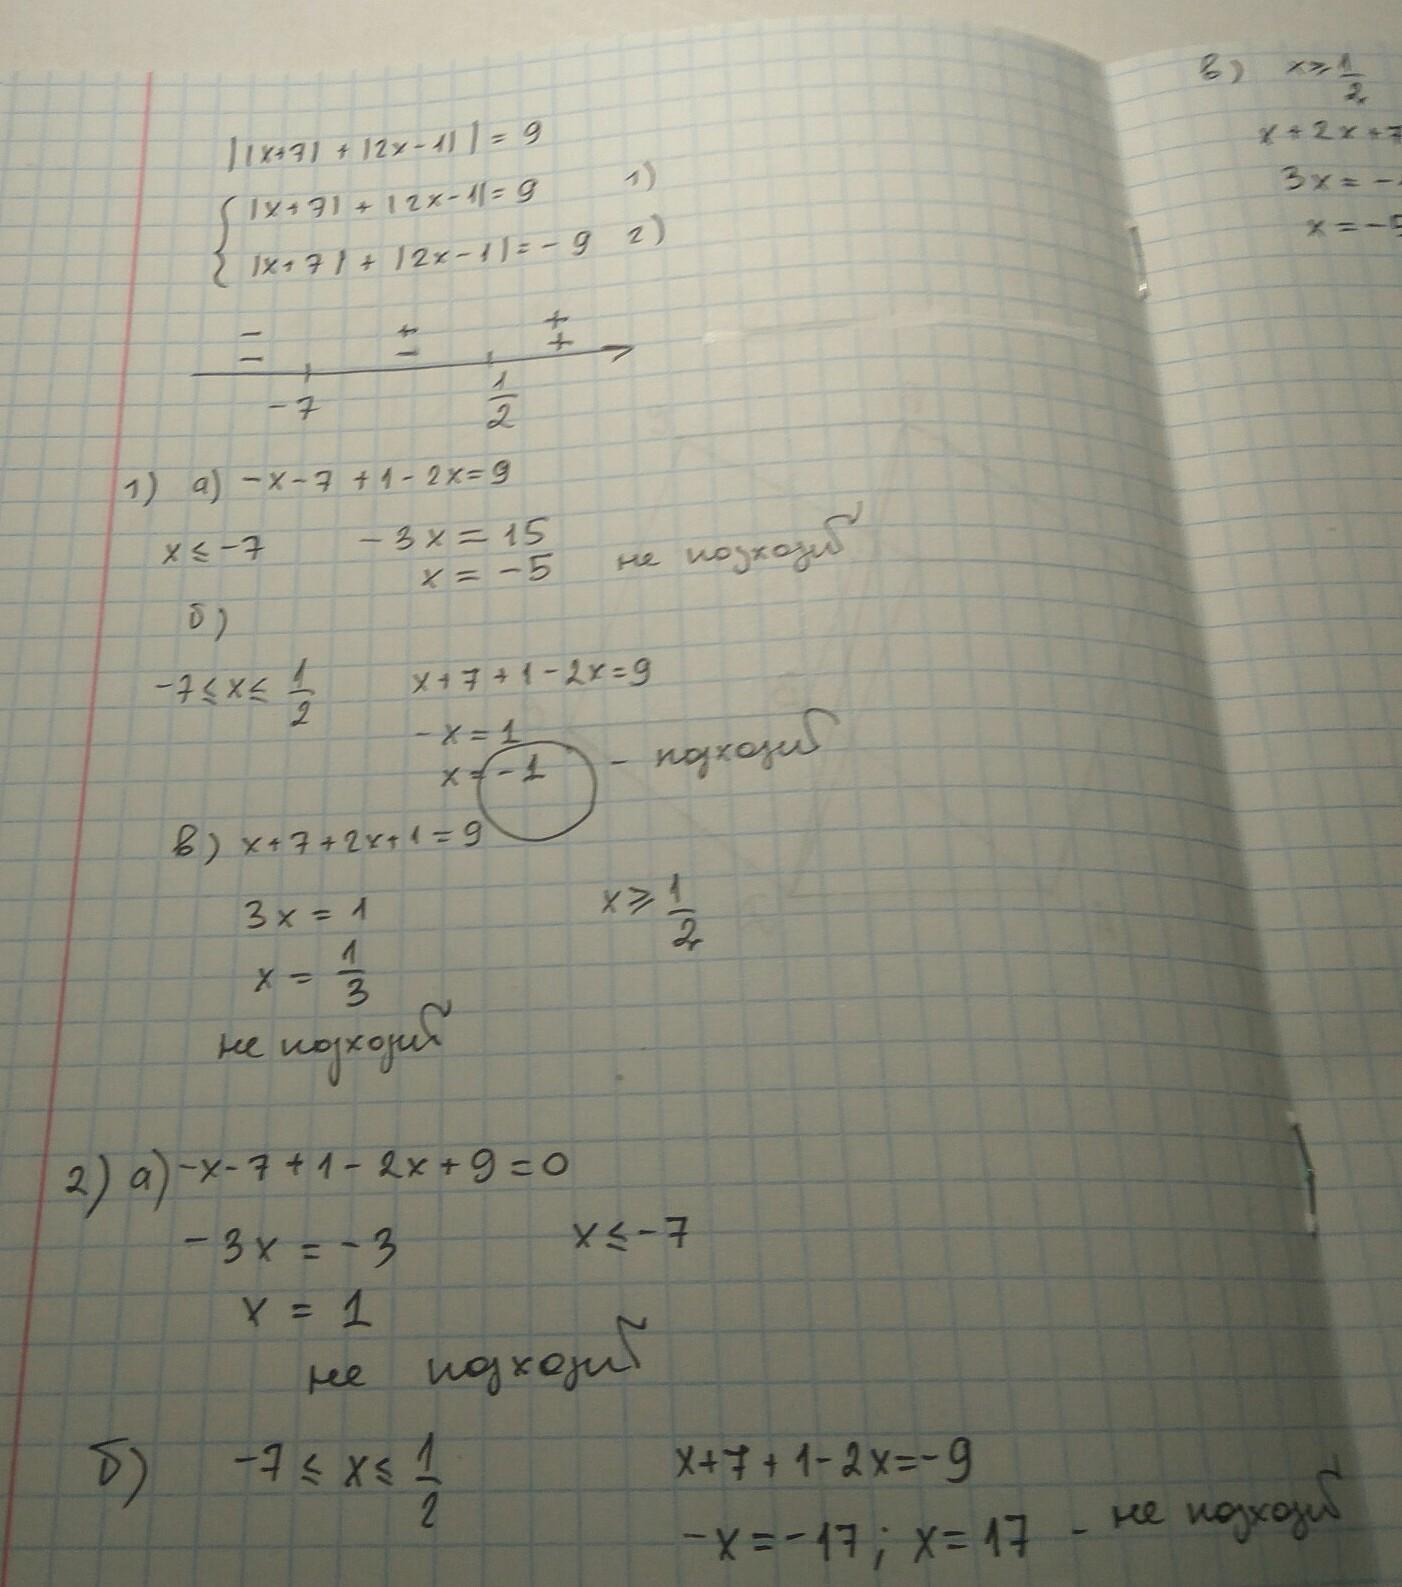 ||x+7| + |2x-1|| = 9
|x+7| + |2x-1| = 9 1)
|x+7| + |2x-1| = -9 2)
- + +
- - +
-7 1/2
1) а) -x-7+1-2x=9
x ≤ -7 -3x = 15
x = -5 не подходит
б)
-7 ≤ x ≤ 1/2 x+7+1-2x=9
-x=1
x=-1 - подходит
в) x+7+2x+1=9
3x = 1 x ≥ 1/2
x = 1/3
не подходит
2) а) -x-7+1-2x+9=0
-3x = -3 x ≤ -7
x = 1
не подходит
б) -7 ≤ x ≤ 1/2 x+7+1-2x=-9
-x=-17; x=17 - не подходит
в) x ≥ 1/2
x+2x+7
3x=-
x=-